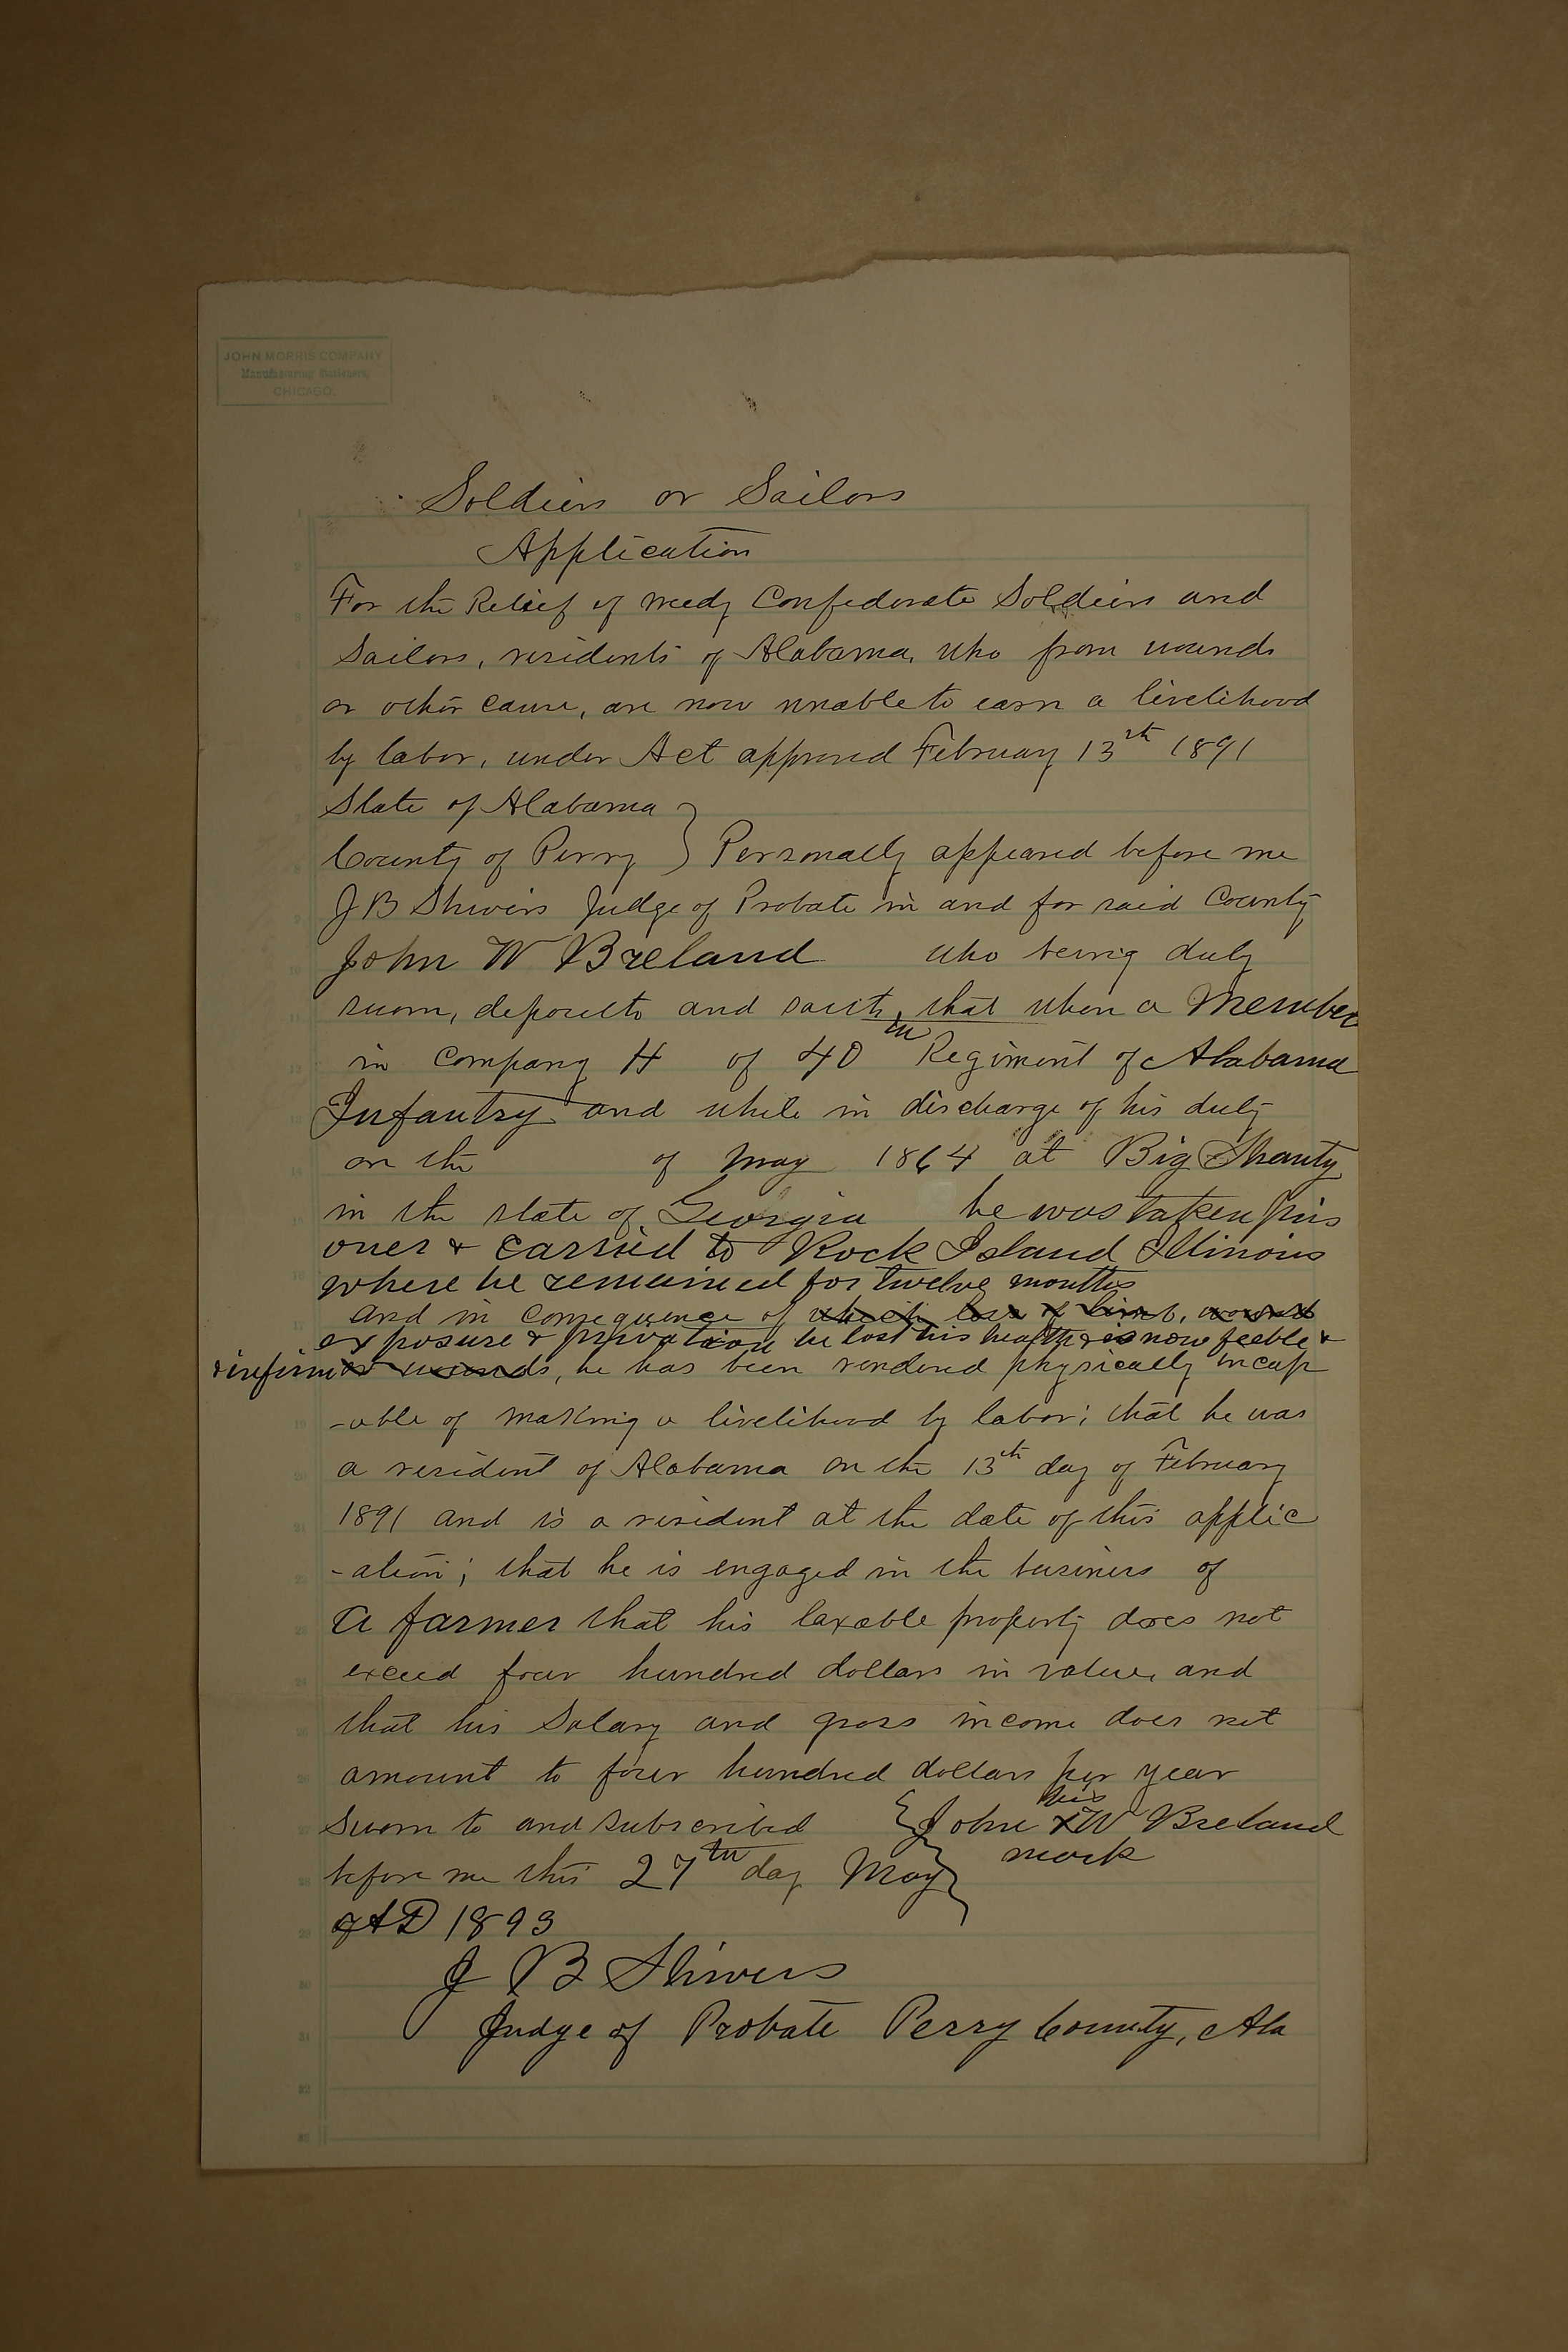 JOHN MORRIS COMPANY
Manufacturing Stationers
CHICAGO.
Soldiers or Sailors
Application
For the Relief of needy Confederate Soldiers and
Sailors, residents of Alabama, who from wounds
or other cause, are now unable to earn a livelihood
by labor, under Act approved February 13th 1891
State of Alabama }
County of Perry } Personally appeared before me
J B Shivers Judge of Probate in and for said County
John W Breland who being duly
sworn, deposeth and saith, that when a Member
in Company H of 40th Regiment of Alabama
Infantry and while in discharge of his duty
on the of May 1864 at Big Shanty
in the state of Georgia he was taken pris
oner & carried to Rock Island Illinois
where he remained for twelve months
and in consequence of which loss of limb, wound
exposure & privation he lost his health & is now feeble &
& infirm or wounds, he has been rendered physically incap
-able of making a livelihood by labor; that he was
a resident of Alabama on the 13th day of February
1891 and is a resident at the date of this applic
-ation; that he is engaged in the business of
a farmer that his taxable property does not
exceed four hundred dollars in value, and
that his Salary and gross income does not
amount to four hundred dollars per year
his
Sworn to and subscribed { John X W Breland
before me this 27th day May } mark
of AD 1893
J B Shivers
Judge of Probate Perry County, Ala